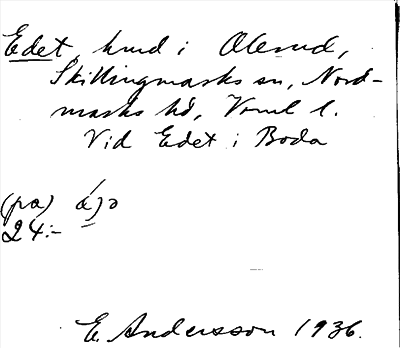 Edet hmd i Olerud,
Skillingmarks sn, Nord-
marks hd, Vrml l.
Vid Edet i Boda
(på)
24:-
E. Andersson 1936.